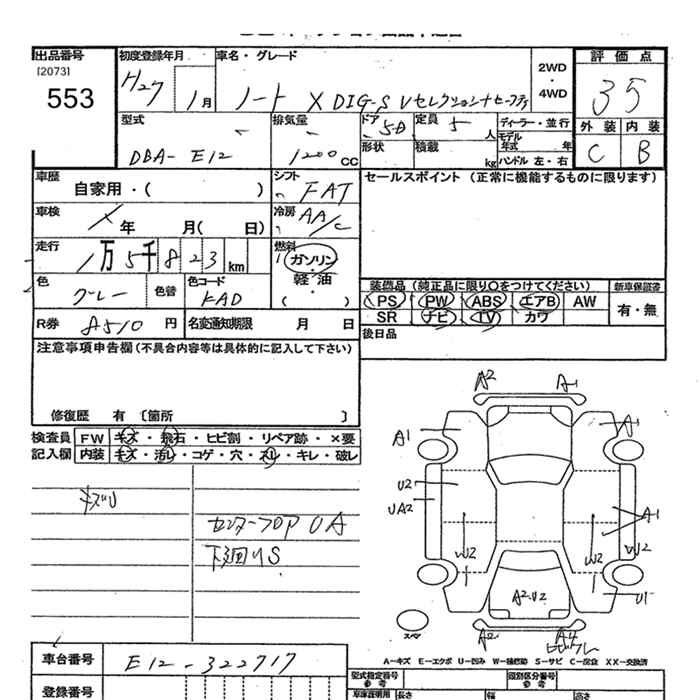 出品番号
[2073]
553
初度登録年月
H27 1月
車名・グレード
ノート X DIG-S Vセレクション+セーフティ
2WD
・
4WD
評価点
35
外装 内装
C B
型式
DBA- E12
排気量
1200 CC
ドア
5D
定員
5人
形状
積載
kg
ディーラー・並行
モデル
年式 年
ハンドル 左・右
車歴
自家用・( )
シフト
FAT
車検
年 月( 日)
冷房
AA/C
走行
1万5千823km
燃料
ガソリン
・
軽油
・
( )
色
グレー
色替
色コード
KAD
R券 8510 円
名変通知期限 月 日
セールスポイント (正常に機能するものに限ります)
装備品 (純正品に限り○をつけてください)
PS PW ABS エアB AW
SR ナビ TV カワ
新車保証書
有・無
後日品
注意事項申告欄(不具合内容等は具体的に記入して下さい)
修復歴 有 [箇所 ]
検査員 FW キズ・飛石・ヒビ割・リペア跡・×要
記入欄 内装 キズ・汚レ・コゲ・穴・スレ・キレ・破レ
キズU
センターフロアUA
下廻りS
A2 A1
A1 A1
U2
UA2
A1
W2 W2 W2
A2.U2
U1
A2 A4
スペア
A-キズ E-エクボ U-凹み W-補修跡 S-サビ C-腐食 XX-交換済
車台番号
E12-322717
登録番号
型式指定番号
参考
類別区分番号
参考
車庫証明用 長さ 幅 高さ